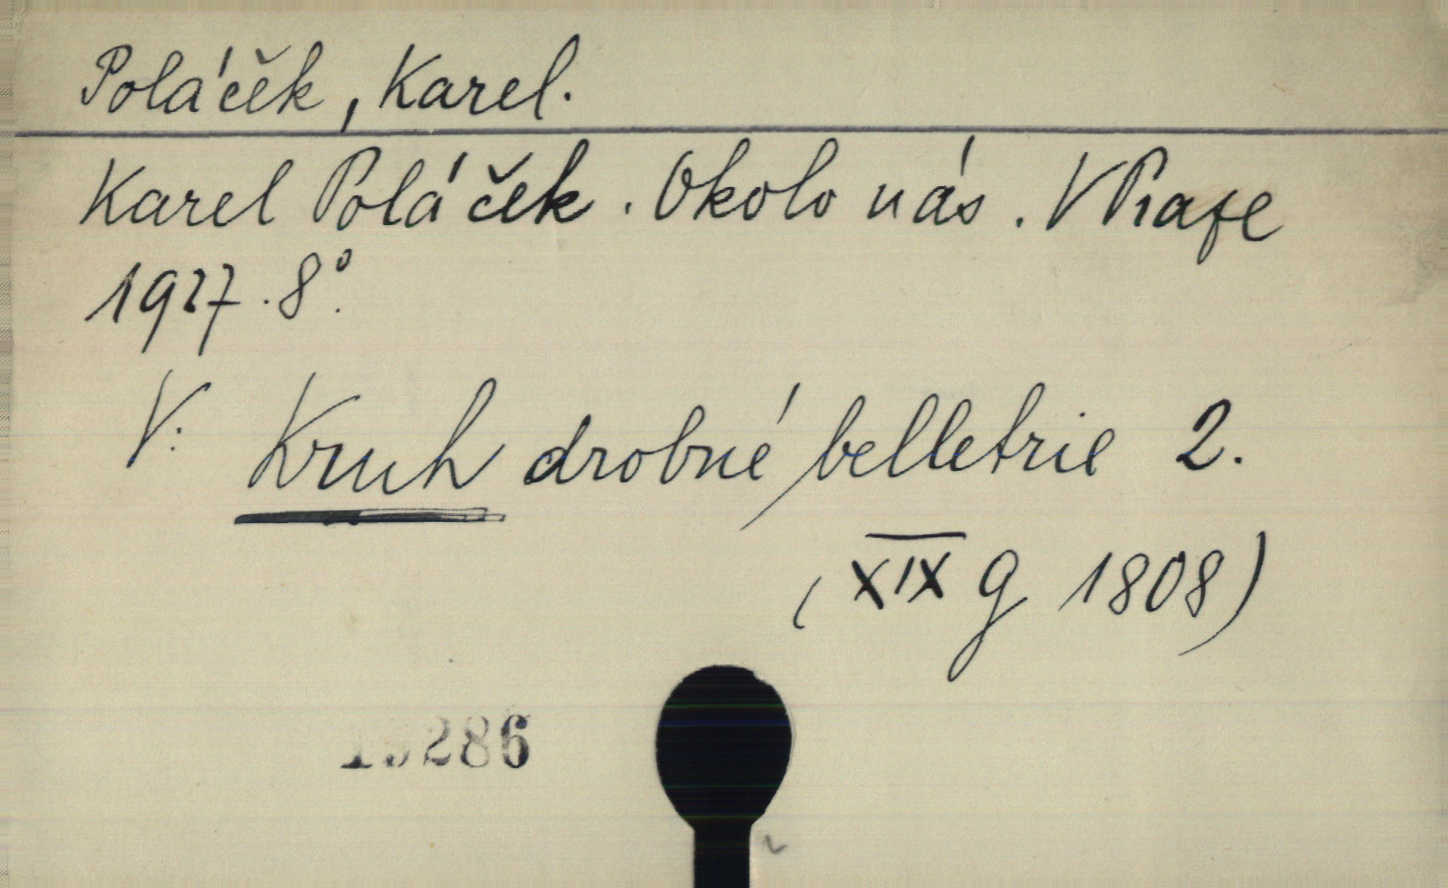 Poláček, Karel.
Karel Poláček. Okolo nás. V Praze
1927. 8°.
V: Kruh drobné belletrie 2.
(XIX g 1808)